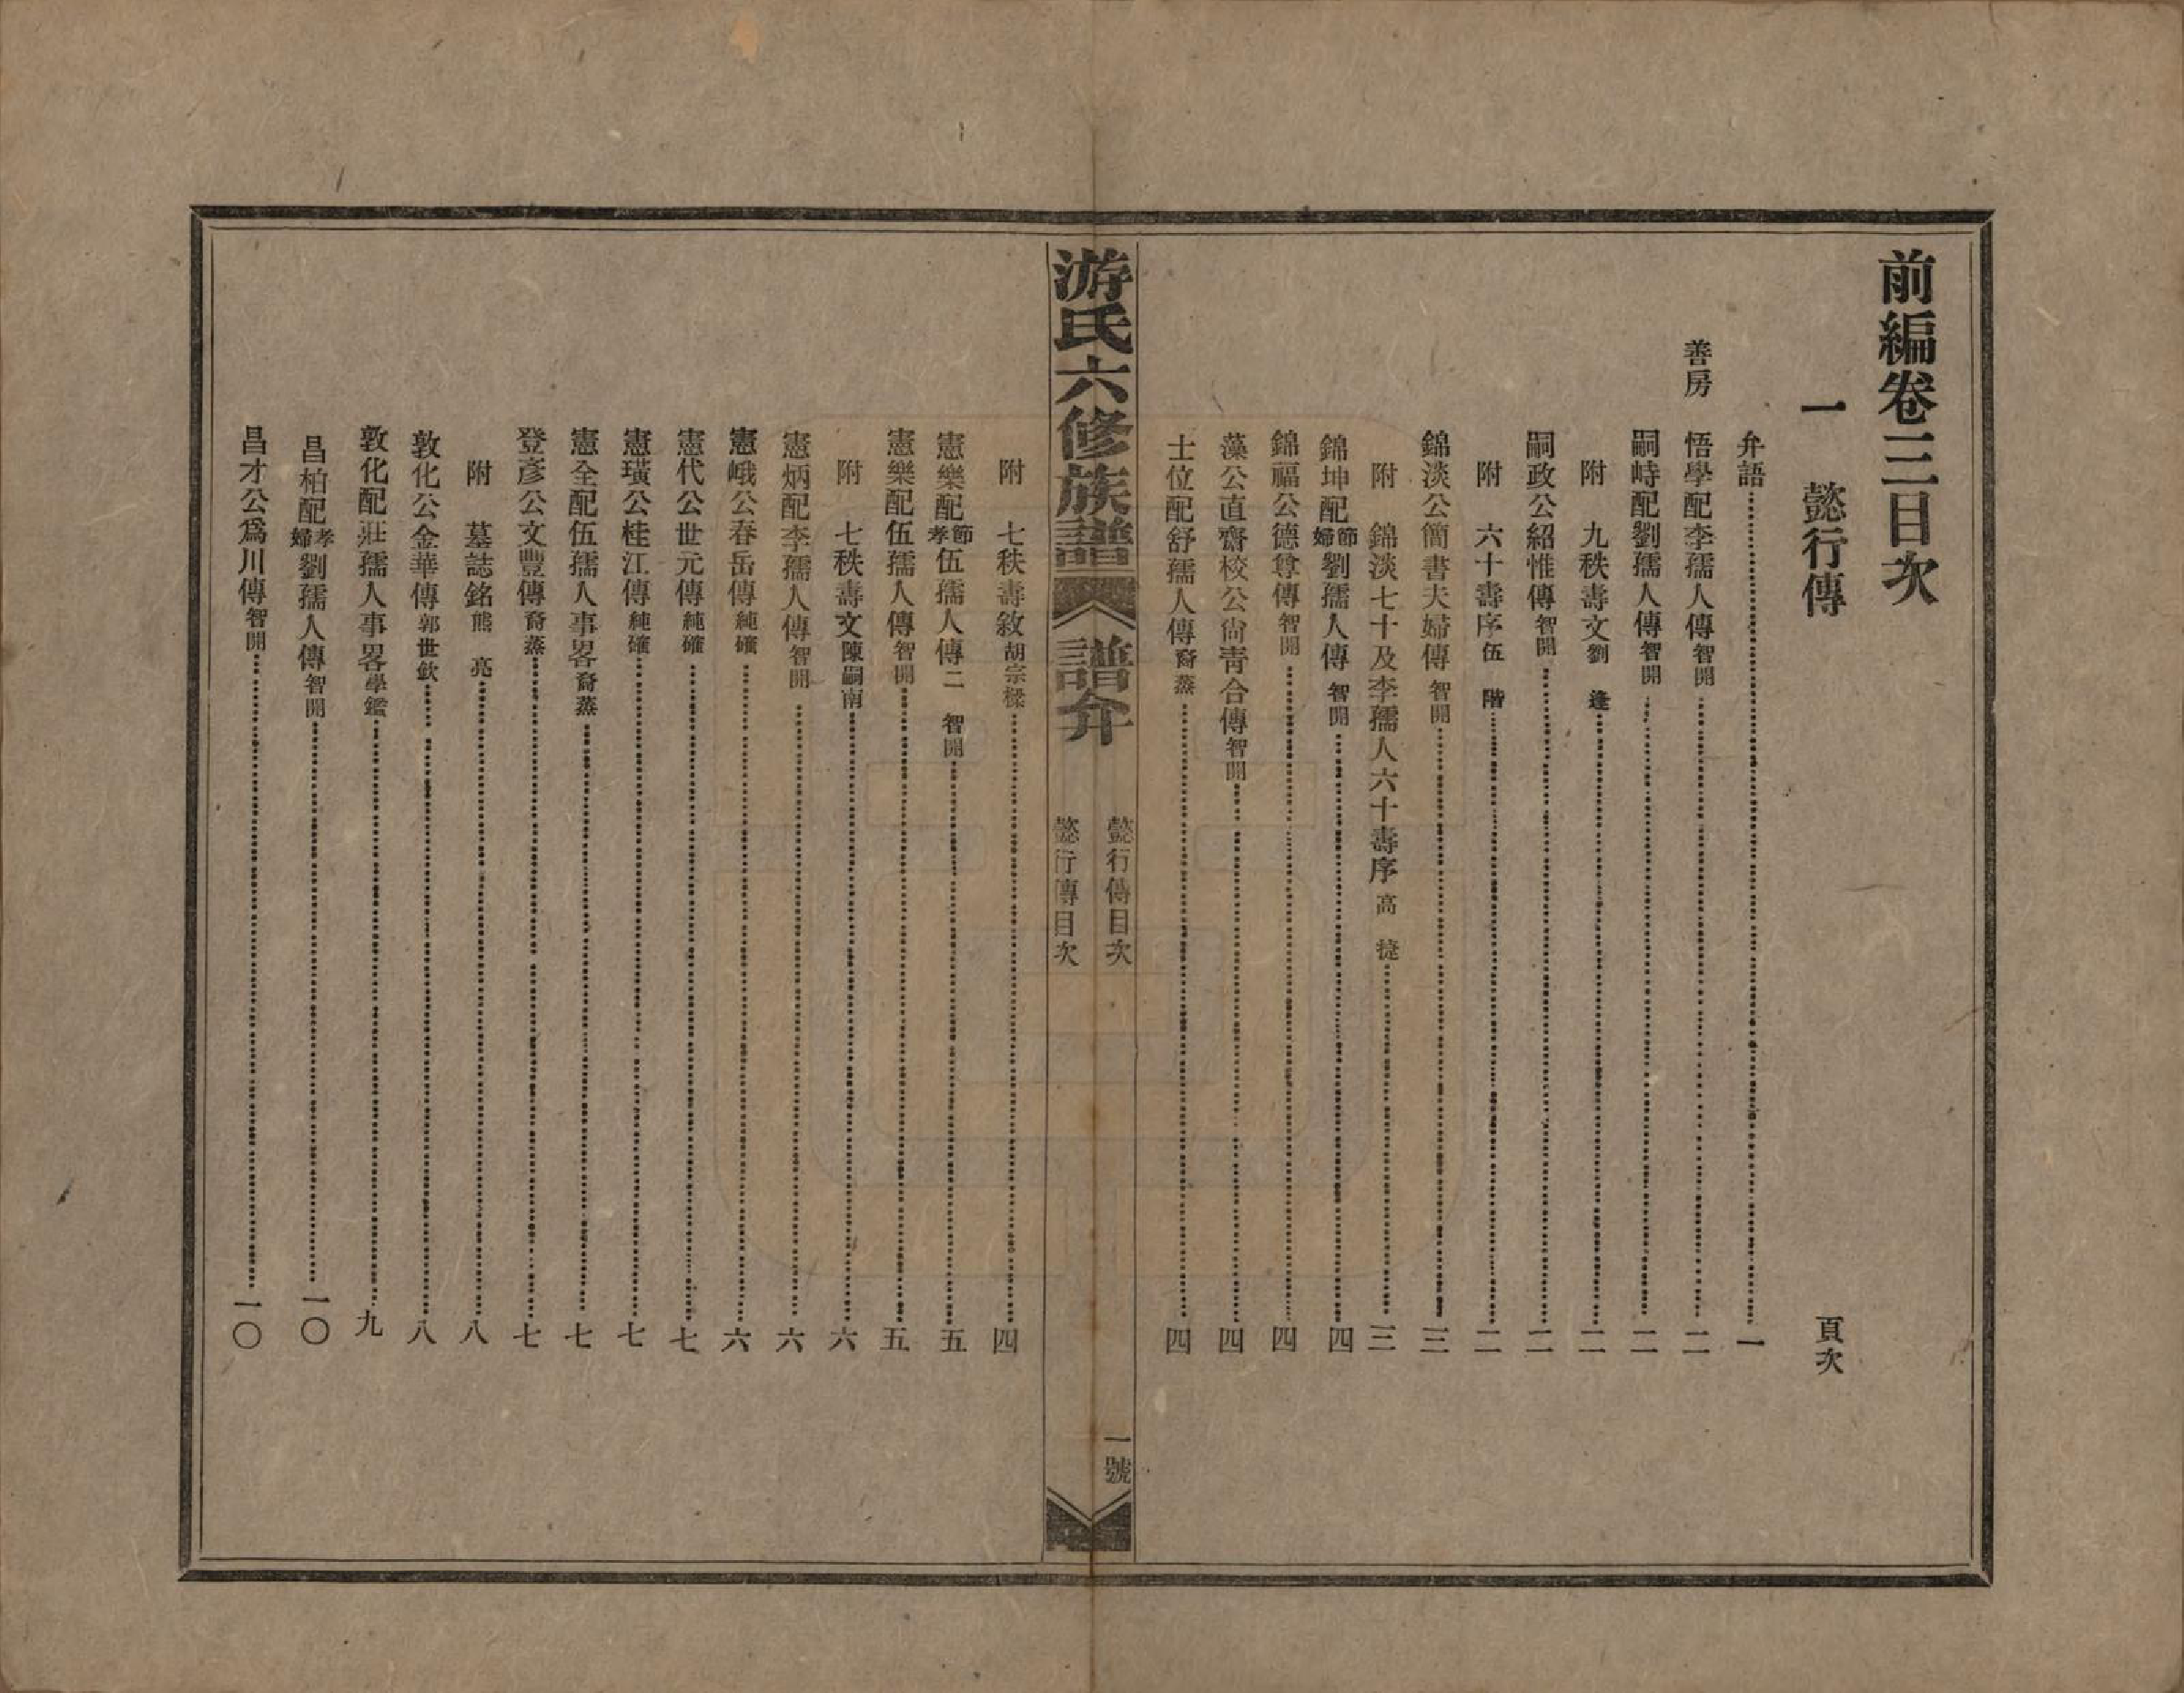 前編卷三目次
一　懿行傳　頁次
弁語……一
善房　悟學配李孺人傳智開……二
嗣峙配劉孺人傳智開……二
附　九秩壽文劉　逢……二
嗣政公紹惟傳智開……二
附　六十壽序伍　階……二
錦淡公簡書夫婦傳智開……三
附　錦淡七十及李孺人六十壽序高　捷……三
錦坤配節婦劉孺人傳智開……四
錦福公德尊傳智開……四
藻公直齋校公尙靑合傳智開……四
士位配舒孺人傳裔蒸……四
游氏六修族譜　譜弁　懿行傳目次　一號
懿行傳目次
附　七秩壽敘胡宗樑……四
憲樂配節孝伍孺人傳二　智開……五
憲樂配伍孺人傳智開……五
附　七秩壽文陳嗣南……六
憲炳配李孺人傳智開……六
憲峨公春岳傳純礭……六
憲代公世元傳純礭……七
憲璜公桂江傳純礭……七
憲全配伍孺人事畧裔蒸……七
登彥公文豐傳裔蒸……七
附　墓誌銘熊　亮……八
敦化公金華傳郭世欽……八
敦化配莊孺人事畧學鑑……九
昌柏配孝婦劉孺人傳智開……一〇
昌才公爲川傳智開……一〇